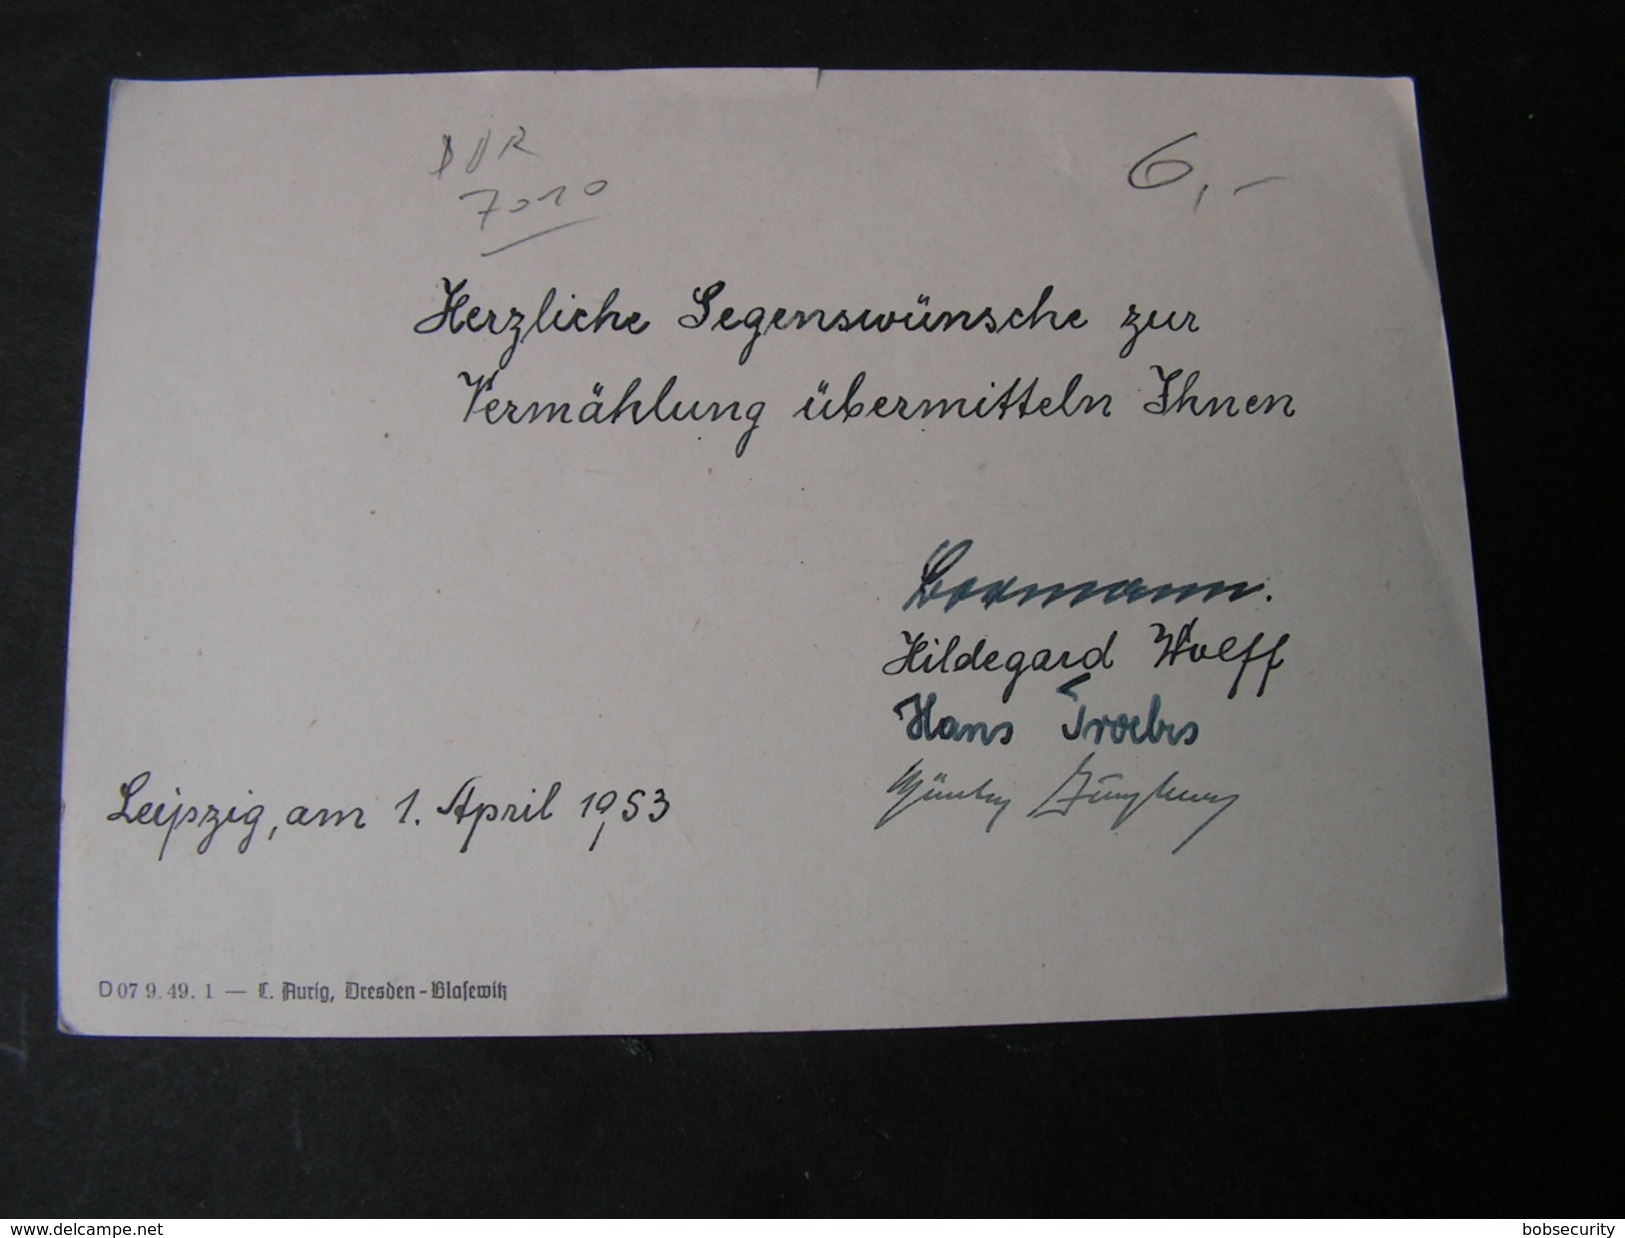 DDR
7010
6,-
Herzliche Segenswünsche zur
Vermählung übermitteln Ihnen
Hildegard Wolff
Hans
Leipzig, am 1. April 1953
D 07 9. 49. 1 — C. Aurig, Dresden-Blasewitz
www.delcampe.net
bobsecurity